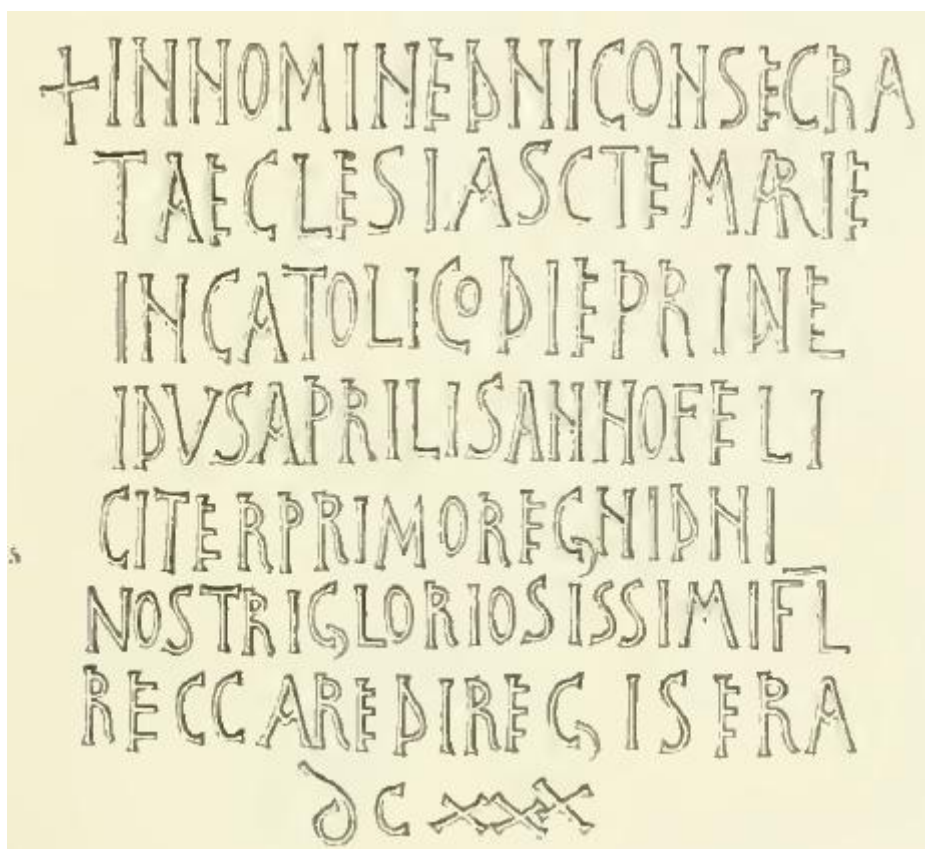 +INNOMINEDNICONSECRA
TAECLESIASCTEMARIE
INCATOLICODIEPRINE
IDUSAPRILISANNOFELI
CITERPRIMOREGNIDNI
NOSTRIGLORIOSISSIMIFL
RECCAREDIREGISERA
DCXXX